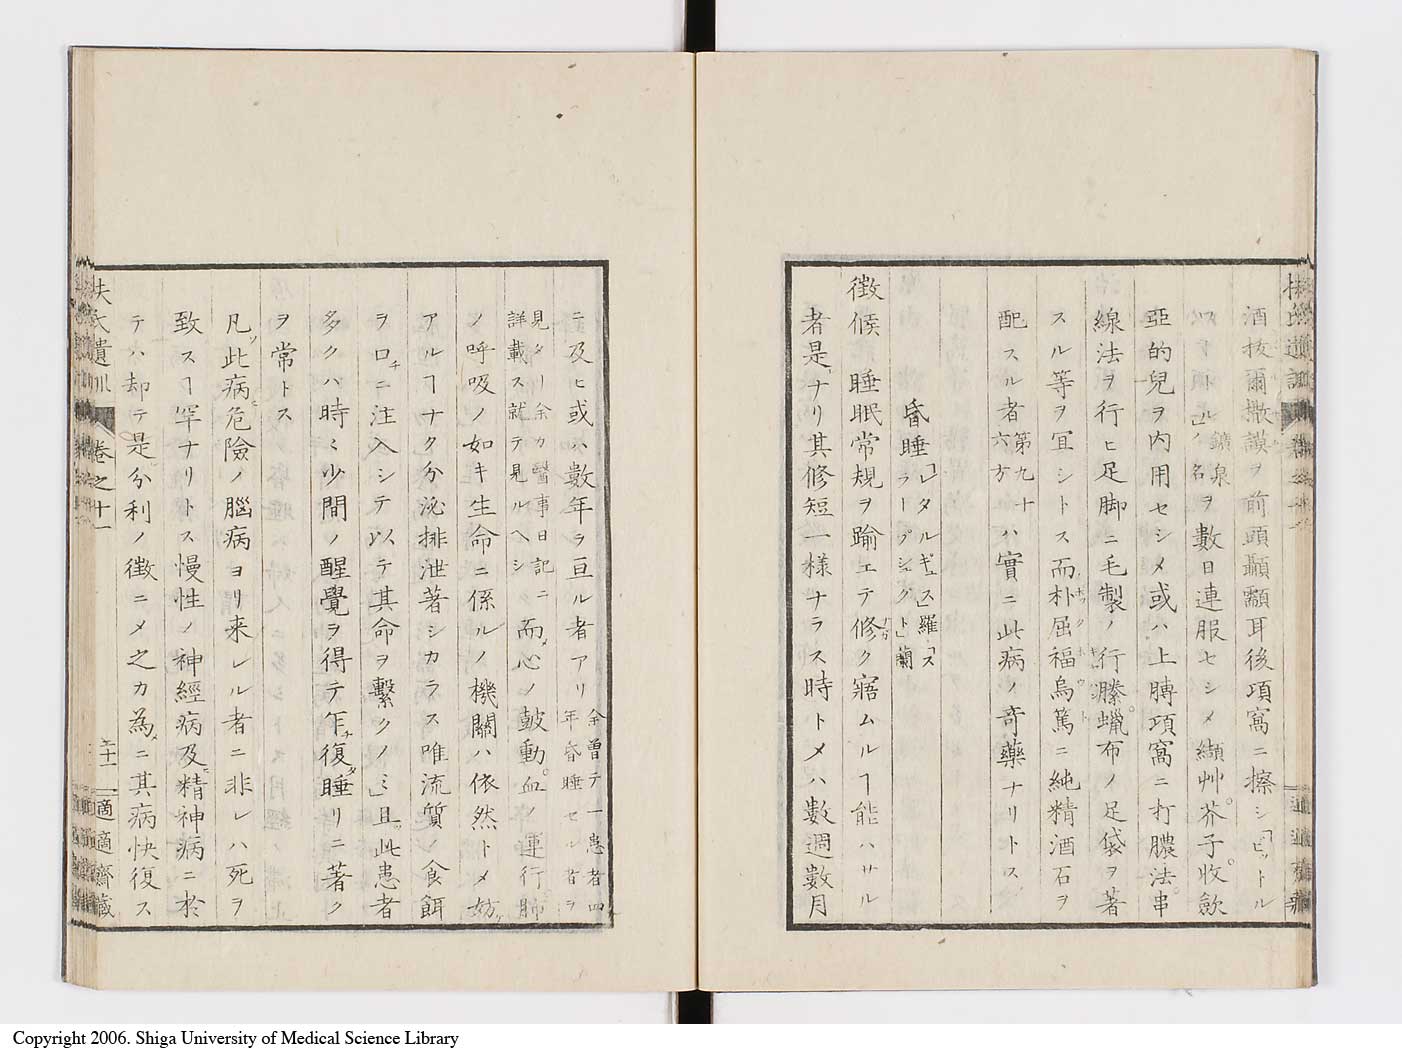 酒抜爾撒謨ヲ前頭顳顬耳後項窩ニ擦シ「ビットル
ワートル」鑛泉ノ名ヲ數日連服セシメ纈艸芥子收歛
亞的兒ヲ內用セシメ或ハ上膊項窩ニ打膿法串
線法ヲ行ヒ足脚ニ毛製ノ行縢蠟布ノ足袋ヲ著
スル等ヲ宜シトス而朴屈福烏篤ニ純精酒石ヲ
配スル者第九十六方ハ實ニ此病ノ奇藥ナリトス
昏睡「レタルギュス」羅「スラープシュクト」蘭
徴候睡眠常規ヲ踰エテ修ク寤ムルヿ能ハサル
者是ナリ其修短一樣ナラス時トメハ數週數月
ニ及ヒ或ハ數年ヲ亘ル者アリ余曽テ一患者四年昏睡セル者ヲ
見タリ余カ醫事日記ニ詳載ス就テ見ルヘシ而心ノ皷動血ノ運行肺
ノ呼吸ノ如キ生命ニ係ルノ機關ハ依然トメ妨
アルヿナク分泌排泄著シカラス唯流質ノ食餌
ヲ口ニ注入シテ以テ其命ヲ繫クノミ且此患者
多クハ時々少間ノ醒覺ヲ得テ乍復睡リニ著ク
ヲ常トス
凡此病危險ノ腦病ヨリ来レル者ニ非レハ死ヲ
致スヿ罕ナリトス慢性ノ神經病及精神病ニ於
テハ却テ是分利ノ徴ニメ之カ為ニ其病快復ス
扶氏遺訓 卷之十一 適適齋藏
Copyright 2006. Shiga University of Medical Science Library